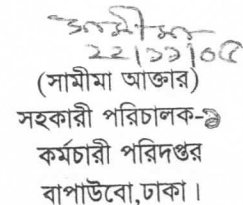 সামীমা
২২/১১/০৫
(সামীমা আক্তার)
সহকারী পরিচালক-১
কর্মচারী পরিদপ্তর
বাপাউবো,ঢাকা।